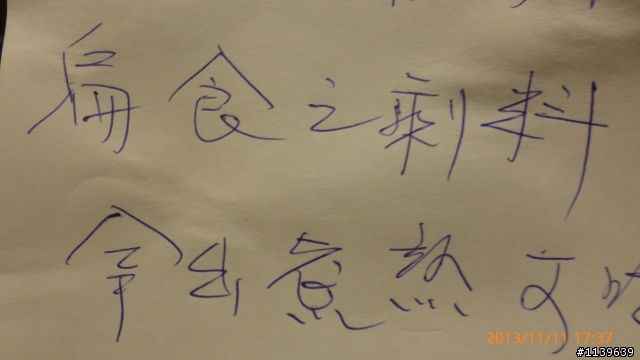 扁食之剩料
拿出煮熟
2013/11/11 17:37
#1139639